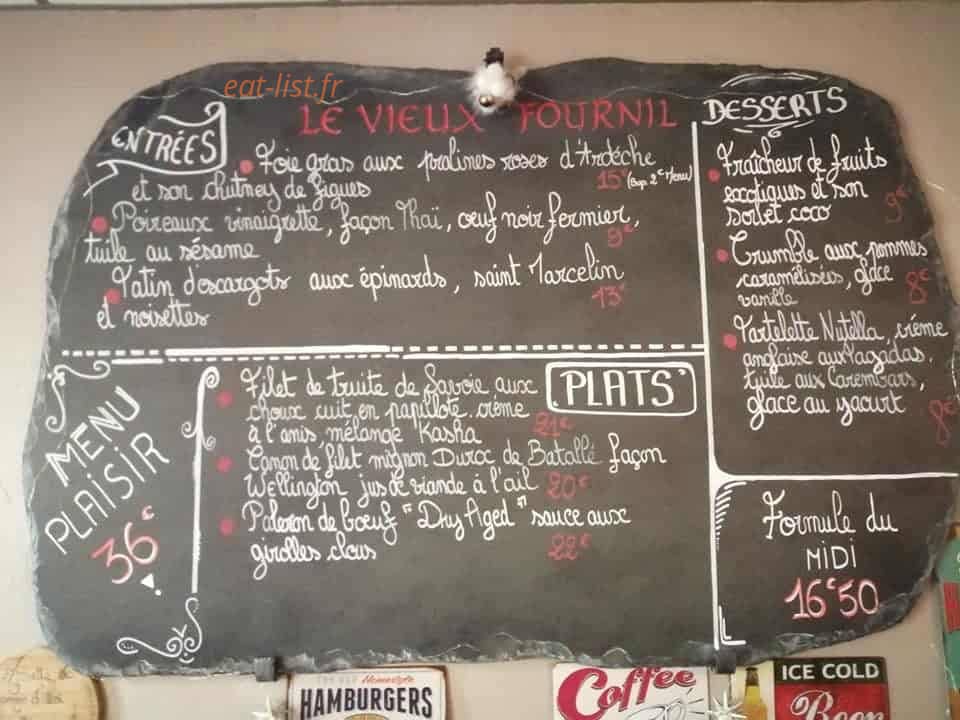 eat-list.fr
LE VIEUX FOURNIL
ENTRÉES
Foie gras aux pralines roses d'Ardèche
et son chutney de figues
15€ (Sup. 2€ Menu)
Poireaux vinaigrette, façon Thaï, œuf noir fermier,
tuile au sésame
9€
Tatin d'escargots aux épinards, saint Marcelin
et noisettes
13€
PLATS
Filet de truite de Savoie aux
choux cuit en papillote, crème
à l'anis, mélange Kasha
21€
Canon de filet mignon Duroc de Batallé façon
Wellington jus de viande à l'ail 20€
Paleron de bœuf "Dry Aged" sauce aux
girolles clous 22€
MENU
PLAISIR
36€
DESSERTS
Fraîcheur de fruits
exotiques et son
sorbet coco
9€
Crumble aux pommes
caramélisées, glace
vanille
8€
Tartelette Nutella, crème
anglaise aux
tuile aux Carambars,
glace au yaourt
8€
Formule du
MIDI
16€50
Homestyle
HAMBURGERS
Coffee
ICE COLD
Beer